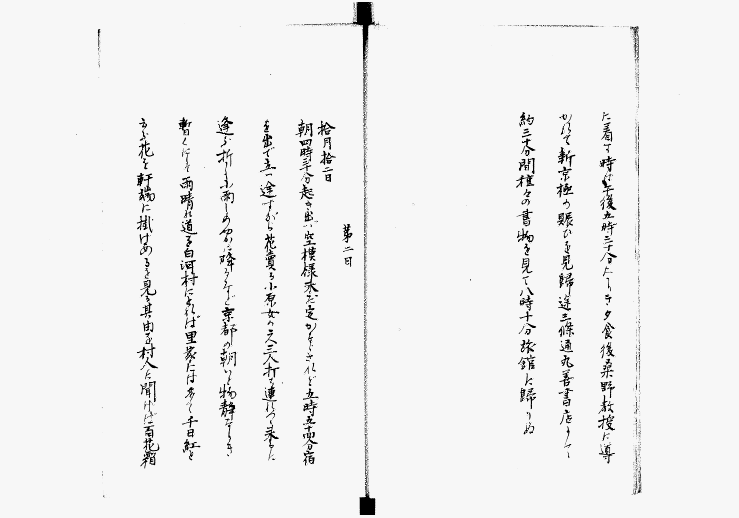 に着す時は午後五時三十分にしき夕食後桑野教授に導
かれて新京極の賑ひを見歸途三條通丸善書店にて
約三十分間種々の書物を見て八時十分旅館に歸りぬ
第二日
拾月拾二日
朝四時半分起き出づ空模様未だ定かならざれど五時五十四分宿
を出で立つ途すがら花賣る小原女の二人三人打ち連れつゝ来るに
逢ふ折しも小雨しめやかに降りたれど京都の朝いと物静なりき
暫くにして雨晴れ道を白河村にとれば里家には多く千日紅と
云ふ花を軒端に掛けあるを見る其由を村人に聞けば百花霜